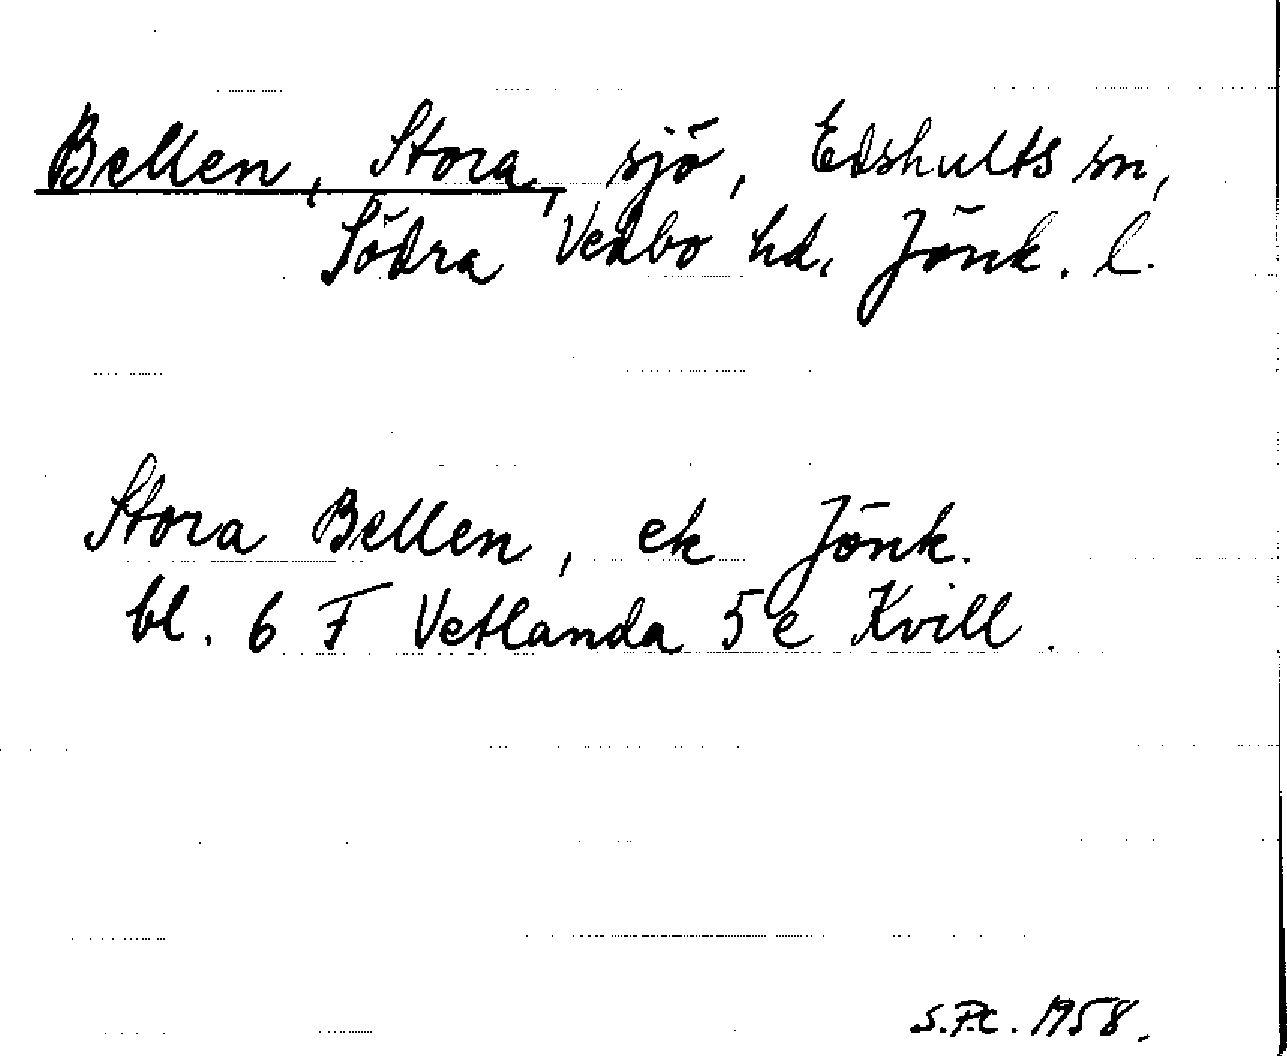 Bellen, Stora, sjö, Edshults sn,
Södra Vedbo hd, Jönk. l.
Stora Bellen, ek Jönk.
bl. 6 F Vetlanda 5 e Kvill.
1958.